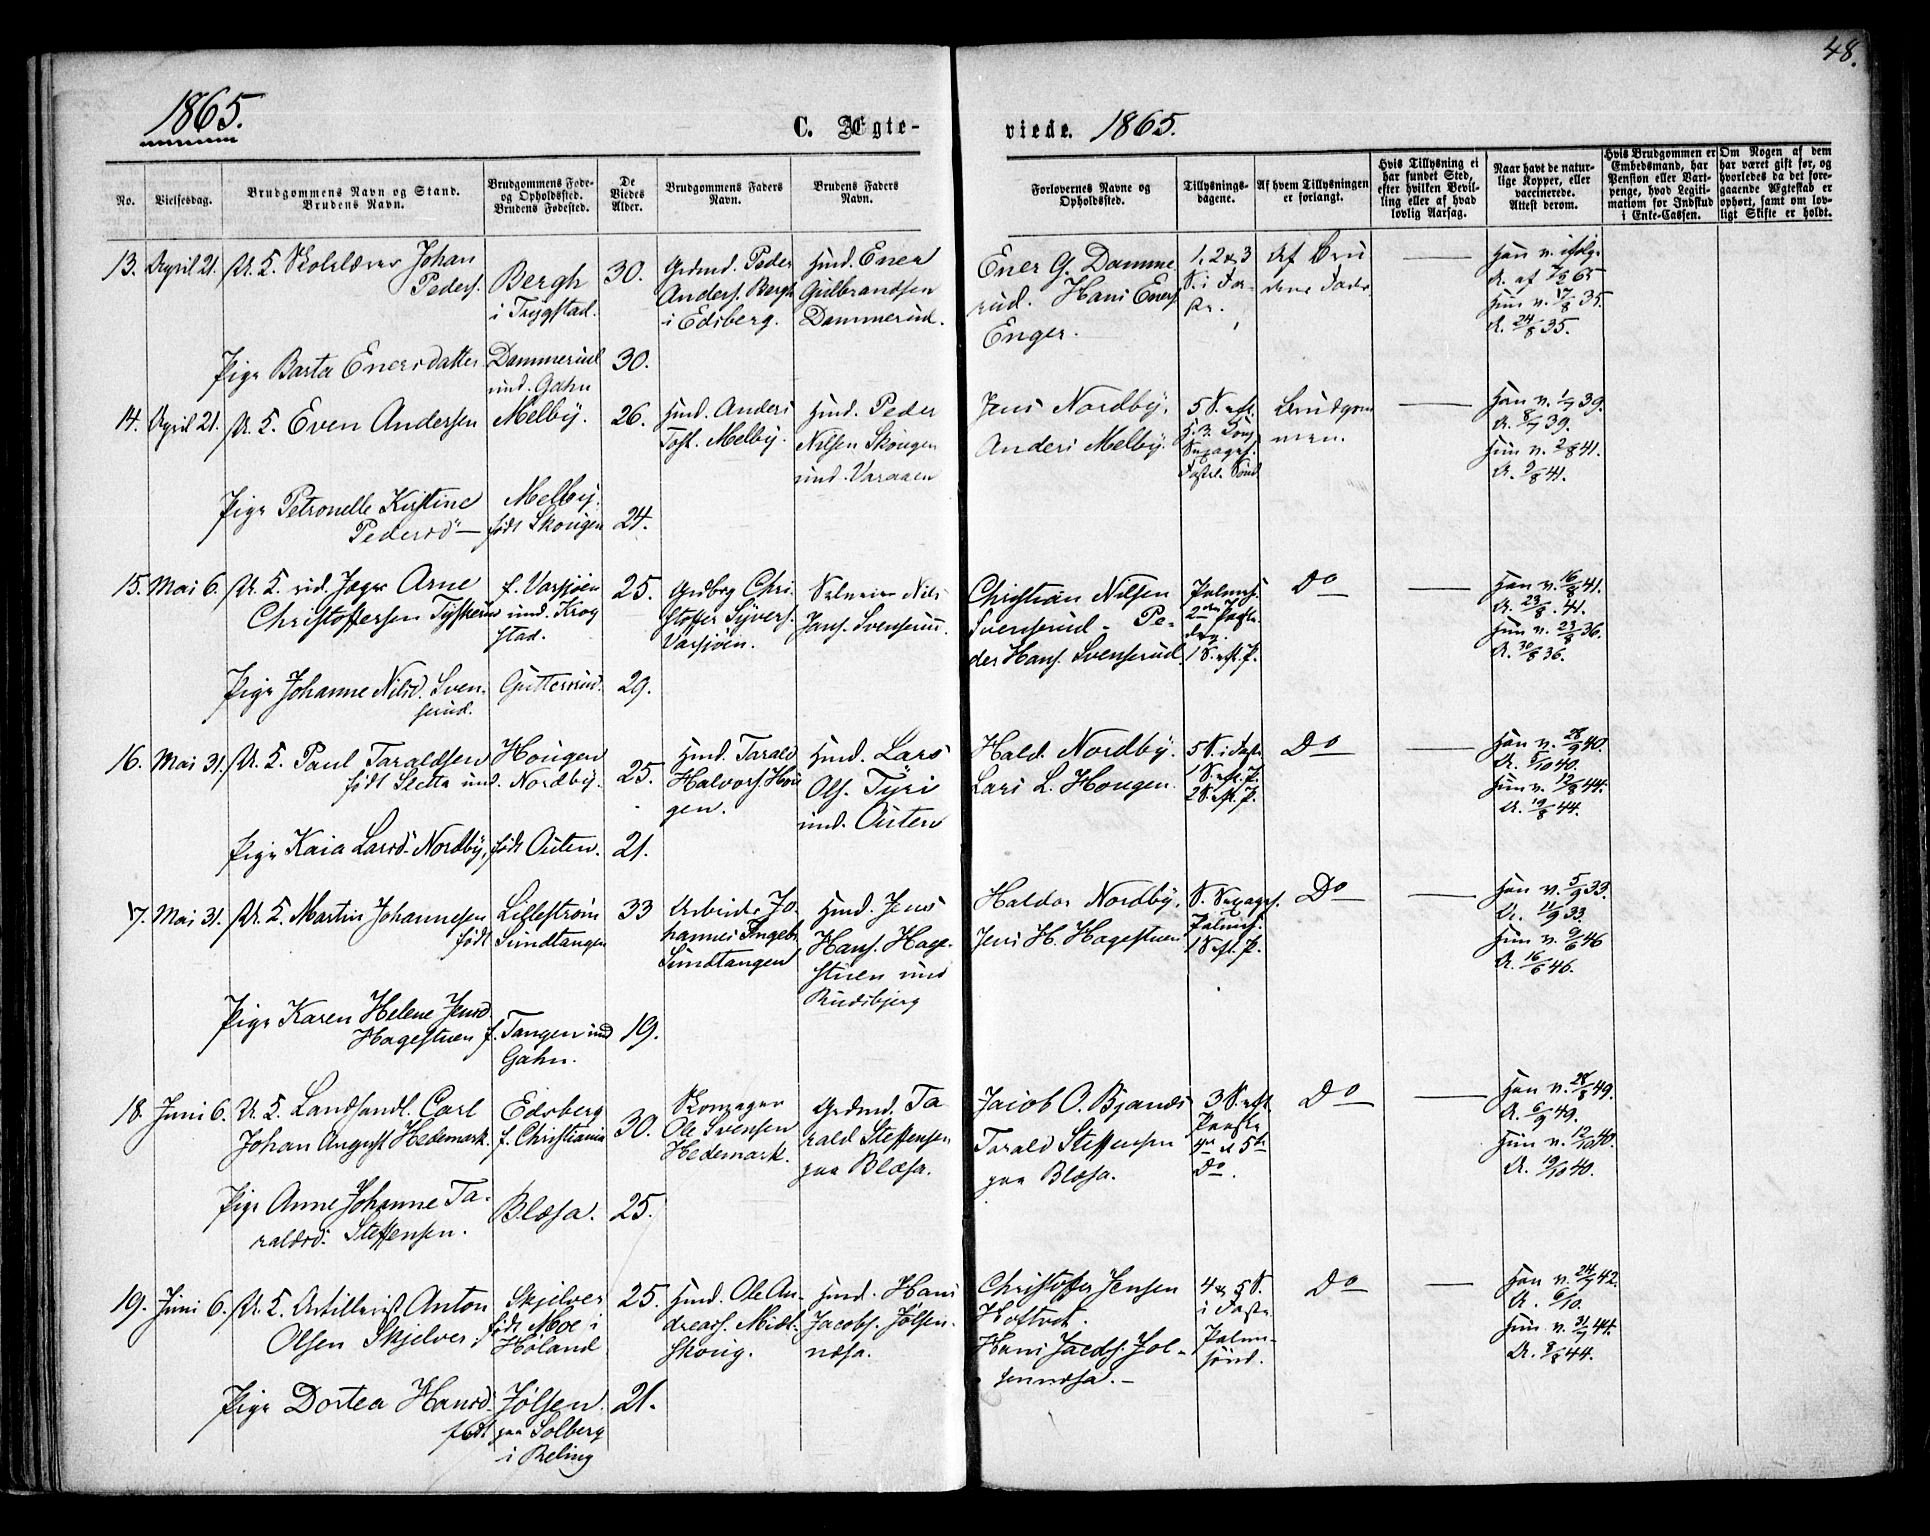 48.
1865.
C. Ægte-
viede. 1865.
No.
Vielsesdag.
Brudgommens Navn og Stand.
Brudens Navn.
Brudgommens Føde-
og Opholdssted.
Brudens Fødested.
De
Viedes
Alder.
Brudgommens Faders
Navn.
Brudens Faders
Navn.
Forlovernes Navne og
Opholdssted.
Tillysnings-
dagene.
Af hvem Tillysningen
er forlangt.
Hvis Tillysning ei
har fundet Sted,
efter hvilken Bevil-
ling eller af hvad
lovlig Aarsag.
Naar havt de natur-
lige Kopper, eller
vaccinerede.
Attest derom.
Hvis Brudgommen er
Embedsmand, har
Pension eller Vart-
penge, hvad Legiti-
mation for Indskud
i Enke-Cassen.
Om Nogen af dem
har været gift før, og
hvorledes da det fore-
gaaende Ægteskab er
ophørt, samt om lov-
ligt Skifte er holdt.
13. April 21. U. K. Skolelærer Johan
Peders.
Bergh
i Trygstad.
30.
Grdmd. Peder
Anders. Bergh
i Edsberg.
Husmd. Ener
Gulbrandsen
Dammerud.
Ener G. Damme
rud. Hans Eners.
Enger.
1, 2 & 3
S. i Fa-
ste.
Af Bru
dens Fader
Han v. ifølge
A. af 7/2 65
Hun v. 17/8 35.
A. 24/8 35.
Pige Barta Enersdatter
Dammerud
und. Gahn
30.
14. April 21. U. K. Even Andersen
Melby.
26.
Husmd. Anders
Tost. Melby.
Husmd. Peder
Nilsen Skougen
und. Varaaen
Jens Nordby.
Anders Melby.
5 S. eft.
H. 3 Kong.
Sexages.
Fastel. Sønd
Brudgom
men.
Han v. 1/7 39.
A. 8/7 39.
Hun v. 2/8 41.
A. 9/8 41.
Pige Petronelle Kirstine
Pedersd
Melby.
født Skougen
24.
15. Mai 6. U. K. rid. Jæger Arne
Christoffersen Tyskerud
f. Varsjøen
und. Krog
stad.
25.
Grdbrg Chri
stoffer Syvers.
Varsjøen.
Selveier Nils
Jans. Svenserud.
Christian Nilsen
Svenserud - Pe-
der Hans. Svenserud.
Palmes.
2den Paaske
dag.
1 S. eft. P.
Do
Han v. 16/8 41.
A. 23/8 41.
Hun v. 23/8 36.
A. 30/8 36.
Pige Johanne Nilsd. Sven-
serud.
Gutterud.
29.
16. Mai 31. U. K. Paul Taraldsen
født Sletta und. Nordby.
Hougen
25.
Husmd. Tarald
Halvors. Hou
gen.
Husmd. Lars
Ols. Tyri
und. Outen
Hald. Nordby.
Lars L. Hougen.
5 S. i Faste
1 S. eft. P.
2 S. eft. P.
Do
Han v. 28/9 40.
A. 5/10 40.
Hun v. 12/8 44.
A. 19/8 44.
Pige Kaia Larsd. Nordby, født Outen.
21.
17. Mai 31. U. K. Martin Johannesen
født
Lillestrøm
Sundtangen
33
Arbeider Jo-
hannes Ingebr.
Sundtangen
Husmd. Jens
Hans. Hage-
stuen und
Rudsbjerg
Haldor Nordby.
Jens H. Hagestuen
S. Sexages.
Palmes.
1 S. eft. P.
Do
Han v. 5/9 33.
A. 11/9 33.
Hun v. 9/6 46
A. 16/6 46.
Pige Karen Helene Jensd.
Hagestuen
f. Tangen und
Gahn.
19.
18. Juni 6. U. K. Landhandl. Carl
Johan August Hedemark.
Edsberg
f. Christiania
30.
Skomager
Ole Svensen
Hedemark.
Grdmd. Ta
rald Steffensen
paa Blæsa.
Jacob O. Bjanæs
Tarald Steffensen
paa Blæsa.
3 S. eft
Paaske
4de & 5te
Do.
Do
Han v. 28/8 49.
A. 6/9 49.
Hun v. 12/10 40.
A. 19/10 40.
Pige Anne Johanne Ta-
raldsd. Steffensen.
Blæsa.
25.
19. Juni 6. U. K. Artillerist Anton
Olsen Skjelver
Skjelver
født Moe i
Høland
25.
Husmd. Ole An-
dreas. Midt-
skoug.
Husmd. Hans
Jacobs. Jølsen-
næsa.
Christoffer Jensen
Hoftvet.
Hans Jacobs. Jøl-
sennæsa.
4 & 5 S.
i Faste
Palme-
sønd.
Do
Han v. 24/7 42.
A. 6/10.
Hun v. 31/7 44.
A. 8/8 44.
Pige Dortea Hansd
født
Jølsen.
paa Solberg
i Reling
21.